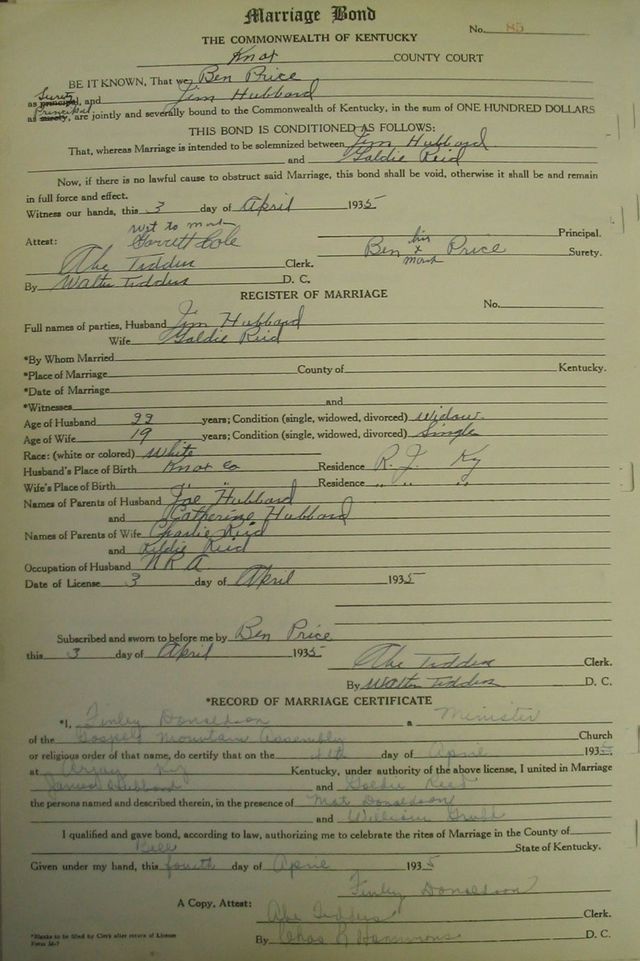 Marriage Bond
No. 85
THE COMMONWEALTH OF KENTUCKY
Knox COUNTY COURT
BE IT KNOWN, That we Ben Price
Surety
as principal, and Jim Hubbard
Principal
as surety, are jointly and severally bound to the Commonwealth of Kentucky, in the sum of ONE HUNDRED DOLLARS
THIS BOND IS CONDITIONED AS FOLLOWS:
That, whereas Marriage is intended to be solemnized between Jim Hubbard
and Goldie Reid
Now, if there is no lawful cause to obstruct said Marriage, this bond shall be void, otherwise it shall be and remain
in full force and effect.
Witness our hands, this 3 day of April 1935
Wit to mark
Attest: Garrett Cole Principal.
Ben his x mark Price Surety.
Abe Tidders Clerk.
By Walter Tidders D. C.
REGISTER OF MARRIAGE
No.
Full names of parties, Husband Jim Hubbard
Wife Goldie Reid
*By Whom Married
*Place of Marriage County of Kentucky.
*Date of Marriage
*Witnesses and
Age of Husband 22 years; Condition (single, widowed, divorced) Widow.
Age of Wife 19 years; Condition (single, widowed, divorced) Single
Race: (white or colored) White
Husband's Place of Birth Knox Co Residence R. J. Ky
Wife's Place of Birth " " Residence " " "
Names of Parents of Husband Joe Hubbard
and Catherine Hubbard
Names of Parents of Wife Charlie Reid
and Reid
Occupation of Husband N R A
Date of License 3 day of April 1935
Subscribed and sworn to before me by Ben Price
this 3 day of April 1935
Abe Tidders Clerk.
By Walter Tidders D. C.
*RECORD OF MARRIAGE CERTIFICATE
*I, Finley Donaldson a Minister
of the Gospel Mountain Assembly Church
or religious order of that name, do certify that on the 4th day of April 1935
at Arjay Ky Kentucky, under authority of the above license, I united in Marriage
James Hubbard and Goldie Reed
the persons named and described therein, in the presence of Mat Donaldson
and William Grubb
I qualified and gave bond, according to law, authorizing me to celebrate the rites of Marriage in the County of
Bell State of Kentucky.
Given under my hand, this fourth day of April 1935
Finley Donaldson
A Copy, Attest: Abe Tidders Clerk.
By Chas R Hammons D. C.
*Blanks to be filled by Clerk after return of License
Form M-7